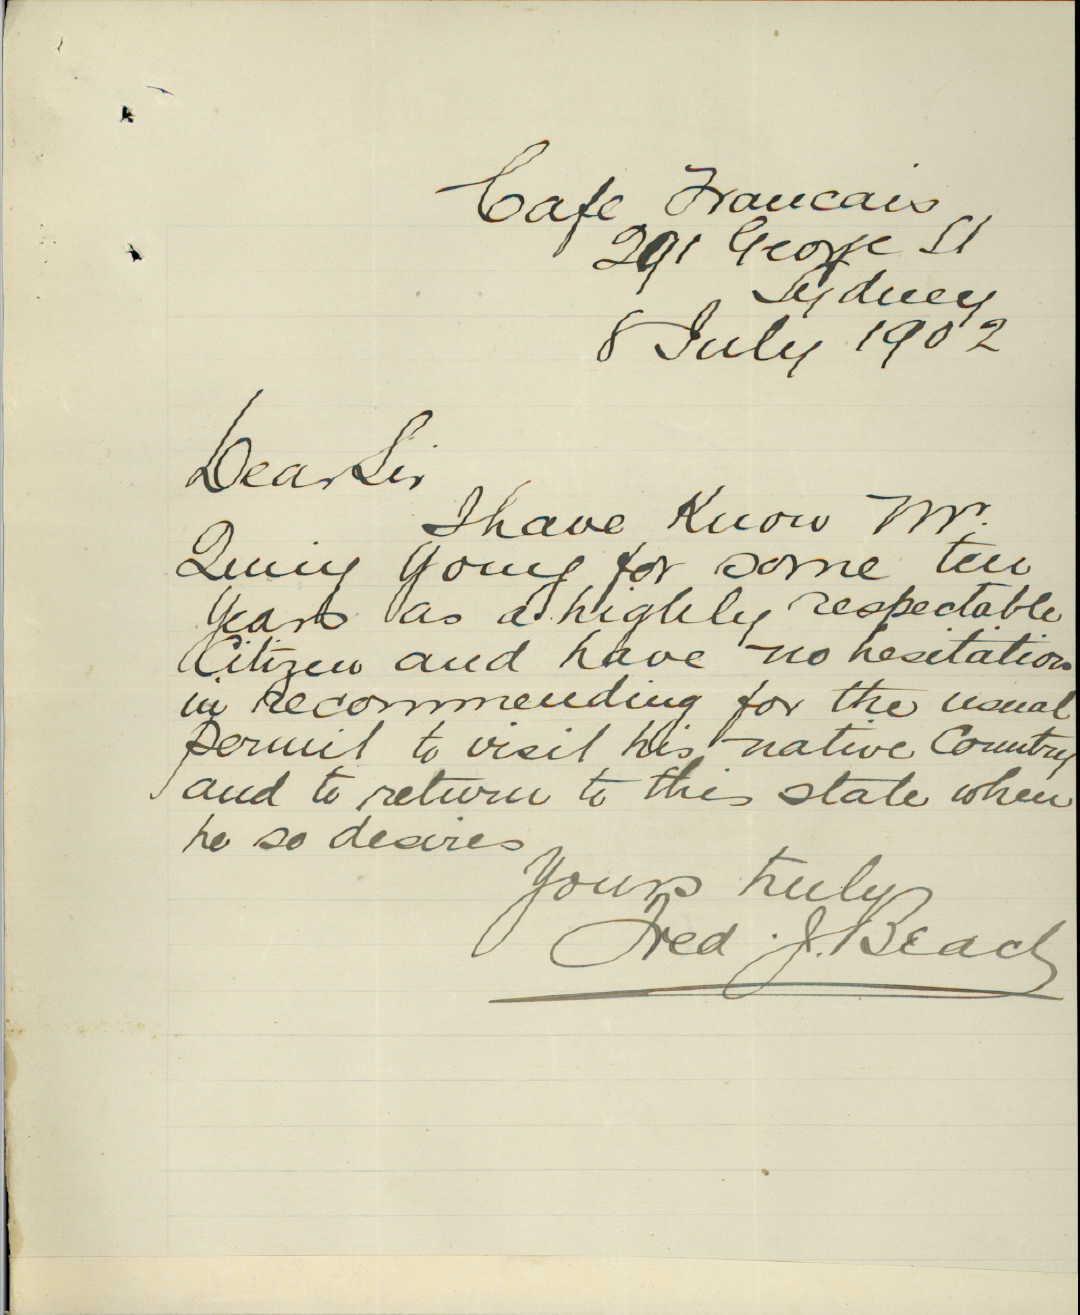 Cafe Francais
291 George St
Sydney
8 July 1902
Dear Sir
I have Know Mr.
Quiny Young for some ten
years as a highly respectable
Citizen and have no hesitation
in recommending for the usual
permit to visit his native Country
and to return to this state when
he so desires
Yours truly
Fred. J. Beach